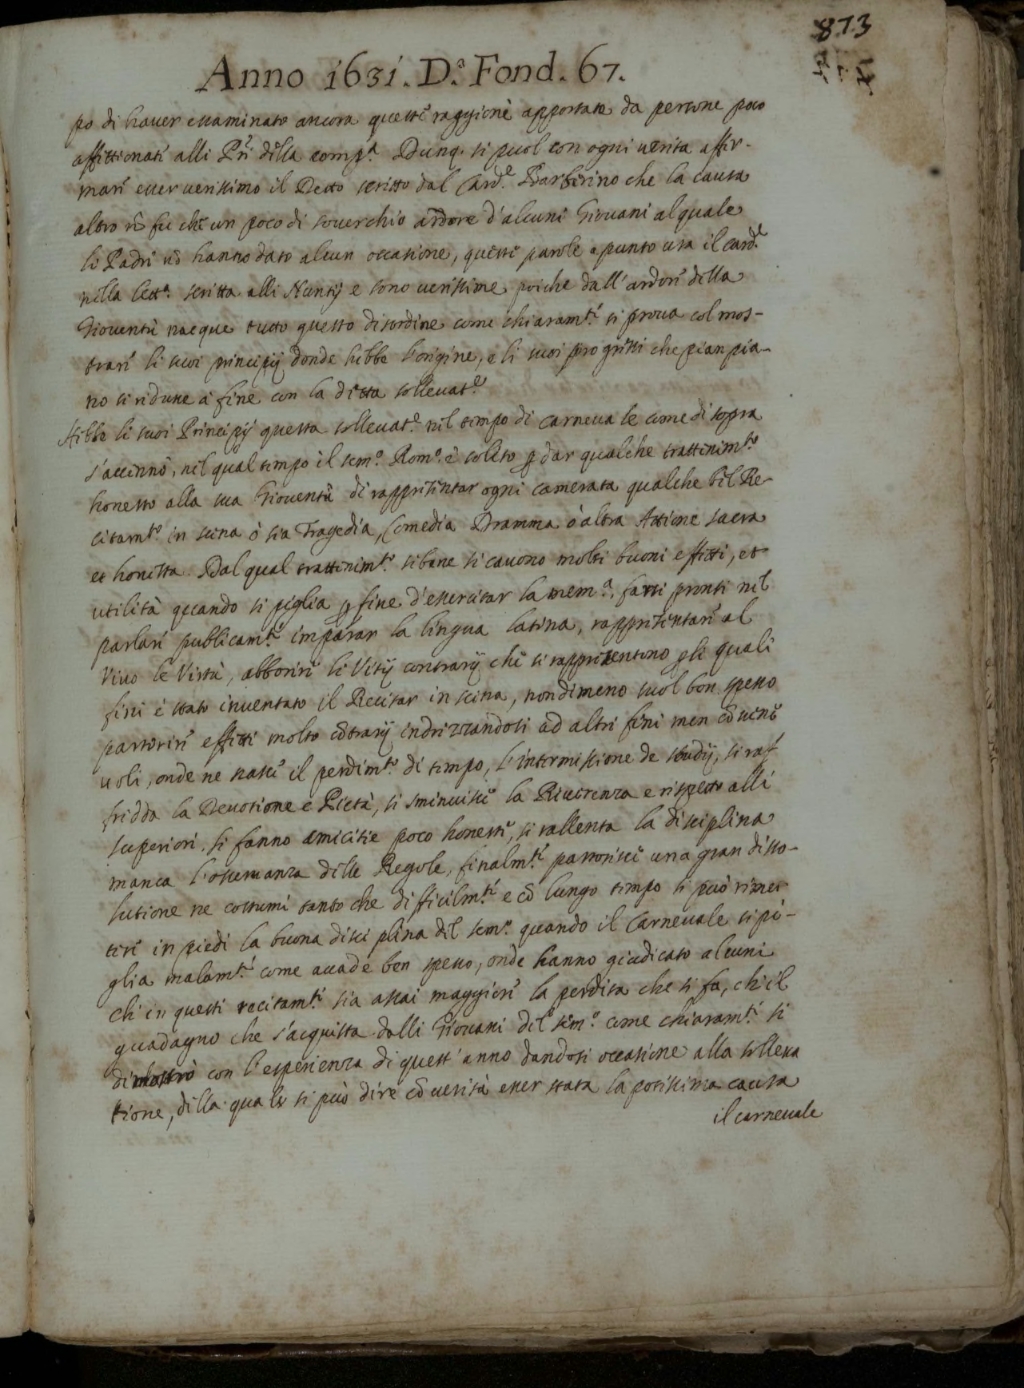 873
Anno 1631. D.ª Fond. 67.
po di haver essaminato ancora queste raggioni apportate da persone poco
affettionati alli P.ri della comp.ª Dunq. si puol con ogni verita affir-
mare esser verissimo il Detto scritto dal Card.le Barberino che la causa
altro nõ fu che un poco di soverchio ardore d'alcuni Giovani al quale
li Padri nõ hanno dato alcun occasione, queste parole apunto usa il Card.le
nella lett.ª scritta alli Nuntij e sono verissime poiche dall'ardore della
Gioventù nacque tutto questo disordine come chiaram.te si prova col mos-
trare li suoi principij donde hebbe l'origine, e li suoi progressi che pian pia-
no si ridusse à fine con la detta sollevat.e
Hebbe li suoi Principij questa sollevat.e nel tempo di carnevale come di sopra
s'accennò, nel qual tempo il sem.º Rom.º è solito p dar qualche trattenim.to
honesto alla sua Gioventù di rappresentar ogni camerata qualche bel Re-
citam.to in scena ò sia Tragedia, Comedia Dramma ò altra Attione sacra
et honesta. Dal qual trattenim.to sibene si cavono molti buoni effetti, et
utilità quando si piglia p fine d'essercitar la mem.ª, farsi pronti nel
parlare publicam.te imparar la lingua latina, rappresentare al
Vivo le Virtù, abborire li Vitij contrarij che si rappresentono p li quali
fini è stato inventato il Recitar in scena, nondimeno suol ben spesso
partorire effetti molto cõtrarij indrizzandosi ad altri fini men cõvene-
voli, onde ne nasce il perdim.to di tempo, l'intermissione de studij, si raf-
fredda la Devotione e Pietà, si sminuisce la Riverenza e rispetto alli
superiori. si fanno amicitie poco honeste, si rallenta la disciplina
manca l'osservanza delle Regole, finalm.te partorisce una gran disso-
lutione ne costumi tanto che difficilm.te e cõ lungo tempo si può rimet-
tere in piedi la buona disciplina del sem.º quando il Carnevale si pi-
glia malam.te come accade ben spesso, onde hanno giudicato alcuni
ch'in questi recitam.ti sia assai maggiore la perdita che si fa, ch'il
guadagno che s'acquista dalli Giovani del sem.º come chiaram.te si
dimostrò con l'esperienza di quest'anno dandosi occasione alla solleva
tione, della quale si può dire cõ verità esser stata la potissima causa
il carnevale